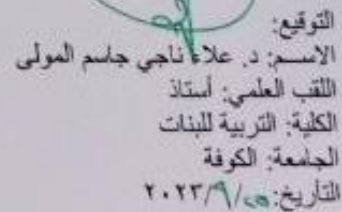 التوقيع:
الاسم: د. علاء ناجي جاسم المولى
اللقب العلمي: أستاذ
الكلية: التربية للبنات
الجامعة: الكوفة
التأريخ: ٢٠٢٣/٩/